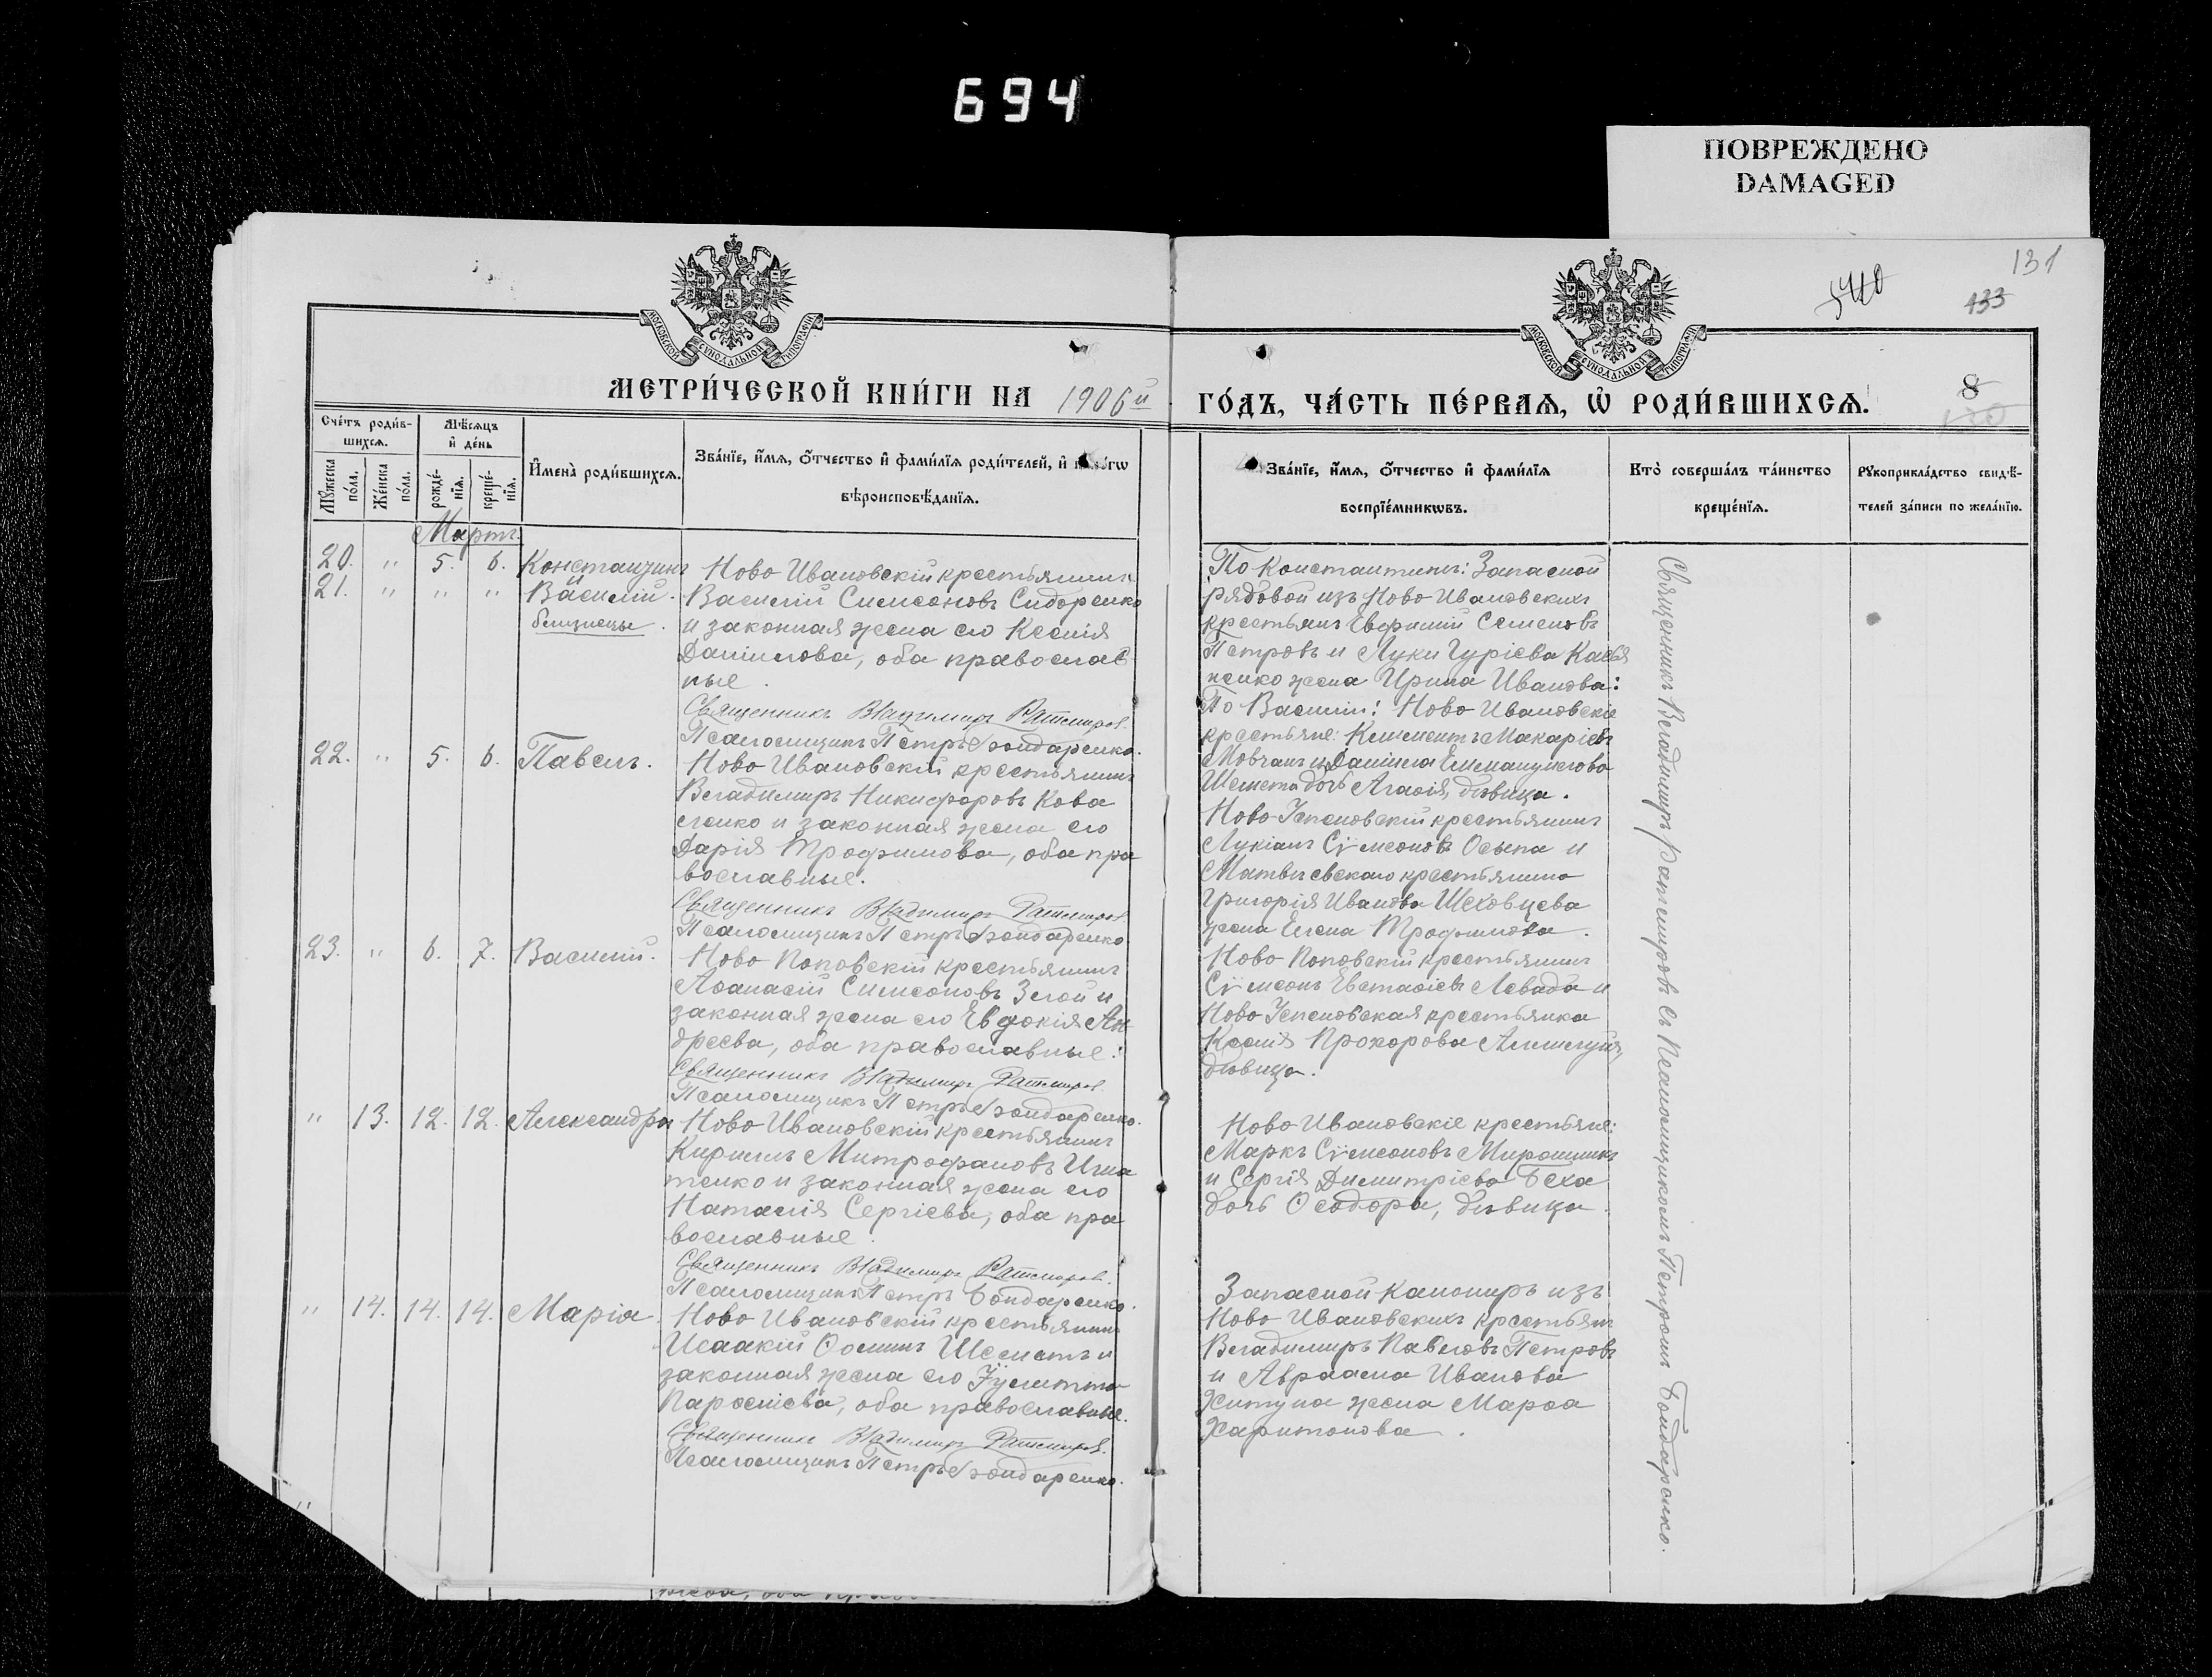 694
ПОВРЕЖДЕНО
DAMAGED
131
433
8
МОСКОВСКОЙ СУНОДАЛЬНОЙ ТИПОГРАФІИ
МОСКОВСКОЙ СУНОДАЛЬНОЙ ТИПОГРАФІИ
МЕТРИ́ЧЕСКОЙ КНИ́ГИ НА 1906й ГО́ДЪ, ЧА́СТЬ ПЕ́РВАѦ, Ѽ РОДИ́ВШИХСѦ.
Сче́тъ роди́в-
шихсѧ.
Мꙋ́жеска
по́ла.
Же́нска
по́ла.
Мѣ́сѧцъ
и҆ де́нь
рожде́-
нїѧ.
креще́-
нїѧ.
И҆мена̀ роди́вшихсѧ.
Зва́нїе, и҆́мѧ, ѻ҆́тчество и҆ фами́лїѧ роди́телей, и҆
вѣроисповѣ́данїѧ.
Зва́нїе, и҆́мѧ, ѻ҆́тчество и҆ фами́лїѧ
воспрїе́мникѡвъ.
Кто̀ соверша́лъ та́инство
креще́нїѧ.
Рꙋкоприкла́дство свидѣ́-
телей за́писи по жела́нїю.
Мартъ.
20. " 5. 6. Константинъ
21. " " " Василій.
близнецы.
Ново Ивановскій крестьянинъ
Василій Симеоновъ Сидоренко
и законная жена его Ксенія
Даніилова, оба православ
ные.
Священникъ Владимиръ Ратмиров.
Псаломщикъ Петръ Бондаренко.
По Константинѣ: Запасной
рядовой изъ Ново Ивановскихъ
крестьянъ Евфимій Семеновъ
Петровъ и Луки Гуріева Касья
ненко жена Ирина Иванова:
По Василіи: Ново Ивановскіе
крестьяне: Климентъ Макаріевъ
Мовчанъ и Даніила Еммануилова
Шемета дочь Агафія, дѣвица.
22. " 5. 6. Павелъ.
Ново Ивановскій крестьянинъ
Владимиръ Никифоровъ Кова
ленко и законная жена его
Дарія Трофимова, оба пра
вославные.
Священникъ Владимиръ Ратмиров
Псаломщикъ Петръ Бондаренко
Ново Успеновскій крестьянинъ
Лукіанъ Сѵмеоновъ Осьпа и
Матвѣевскаго крестьянина
Григорія Иванова Шеховцева
жена Елена Трофимова.
23. " 6. 7. Василій.
Ново Поповскій крестьянинъ
Аѳанасій Симеоновъ Злой и
законная жена его Евдокія Ан
дреева, оба православные:
Священникъ Владимиръ Ратмиров
Псаломщикъ Петръ Бондаренко.
Ново Поповскій крестьянинъ
Сѵмеонъ Евстафіевъ Левада и
Ново Успеновская крестьянка
Ксенія Прохорова
дѣвица.
" 13. 12. 12. Александра
Ново Ивановскій крестьянинъ
Кириллъ Митрофановъ Игна
тенко и законная жена его
Наталія Сергіева, оба пра
вославные.
Священникъ Владимиръ Ратмиров.
Псаломщикъ Петръ Бондаренко.
Ново Ивановскіе крестьяне:
Маркъ Сѵмеоновъ Мирошникъ
и Сергія Димитріева Беха
дочь Ѳеодора, дѣвица.
" 14. 14. 14. Марія.
Ново Ивановскій крестьянинъ
Исаакій Ѳоминъ Шеметъ и
законная жена его Іулитта
Парѳеніева, оба православные.
Священникъ Владимиръ Ратмиров.
Псаломщикъ Петръ Бондаренко.
Запасной канониръ изъ
Ново Ивановскихъ крестьянъ
Владимиръ Павловъ Петровъ
и Авраама Иванова
Хитуна жена Марѳа
Харитонова.
Священникъ Владимиръ Ратмировъ съ псаломщикомъ Петромъ Бондаренко.